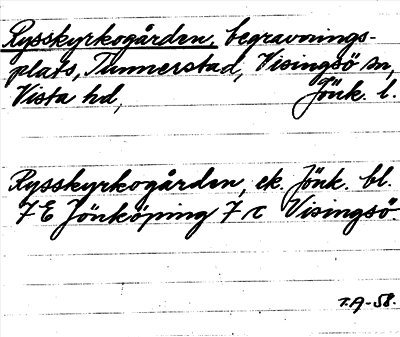 Rysskyrkogården, begravnings-
plats, Tunnerstad, Visingsö sn,
Vista hd, Jönk. l.
Rysskyrkogården, ek. Jönk. bl.
7 E Jönköping 7 c Visingsö.
T.A-58.